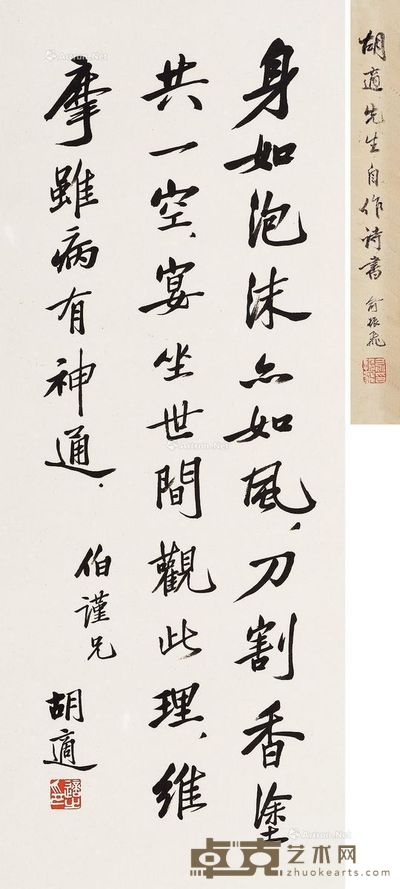 身如泡沫亦如風，刀割香塗
共一空、宴坐世間觀此理、維
摩雖病有神通．
伯謹兄
胡適
胡適先生自作詩書
俞振飛
卓克艺术网
www.zhuokearts.com